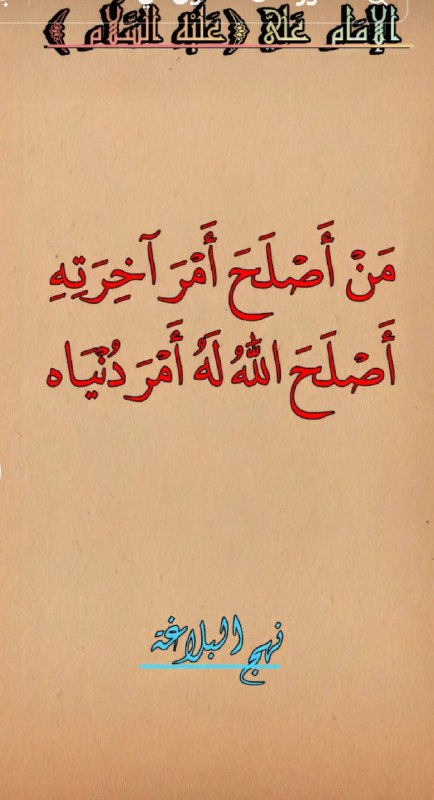 الإمام علي ﴿عليه السلام﴾
مَنْ أَصْلَحَ أَمْرَ آخِرَتِهِ
أَصْلَحَ اللهُ لَهُ أَمْرَ دُنْيَاه
نهج البلاغة